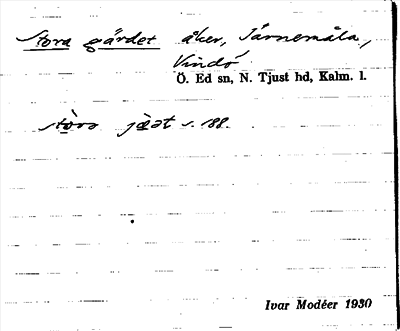 Stora gärdet åker, Järnemåla,
Vindö
Ö. Ed sn, N. Tjust hd, Kalm. l.
stòra jæ̀ət s. 188.
Ivar Modéer 1930